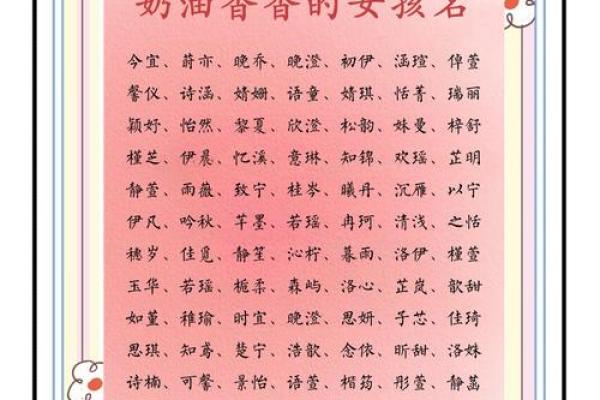 奶油香香的女孩名
今宜、蔚亦、晚乔、晚澄、初伊、涵瑄、倬萱
馨仪、诗涵、婧姗、语童、婧琪、恬菁、瑞丽
颖妤、怡然、黎夏、欣澄、松韵、姝曼、梓舒
槿芝、伊晨、忆溪、意琳、知锦、欢瑶、芷明
静萱、雨薇、致宁、桂岑、曦丹、沉雁、以宁
伊凡、吟秋、芊墨、若瑶、冉珂、清浅、之恬
穗岁、佳觅、静笙、沁柠、暮雨、洛伊、槿萱
玉华、若瑶、栀柔、森屿、洛心、芷岚、歆甜
如堇、稚瑜、时宜、晚澄、思妍、子芯、佳琦
思琪、知鸢、楚宁、浩歆、念依、昕甜、洛姝
诗楠、可馨、景怡、语萱、楷筠、彤萱、静菡